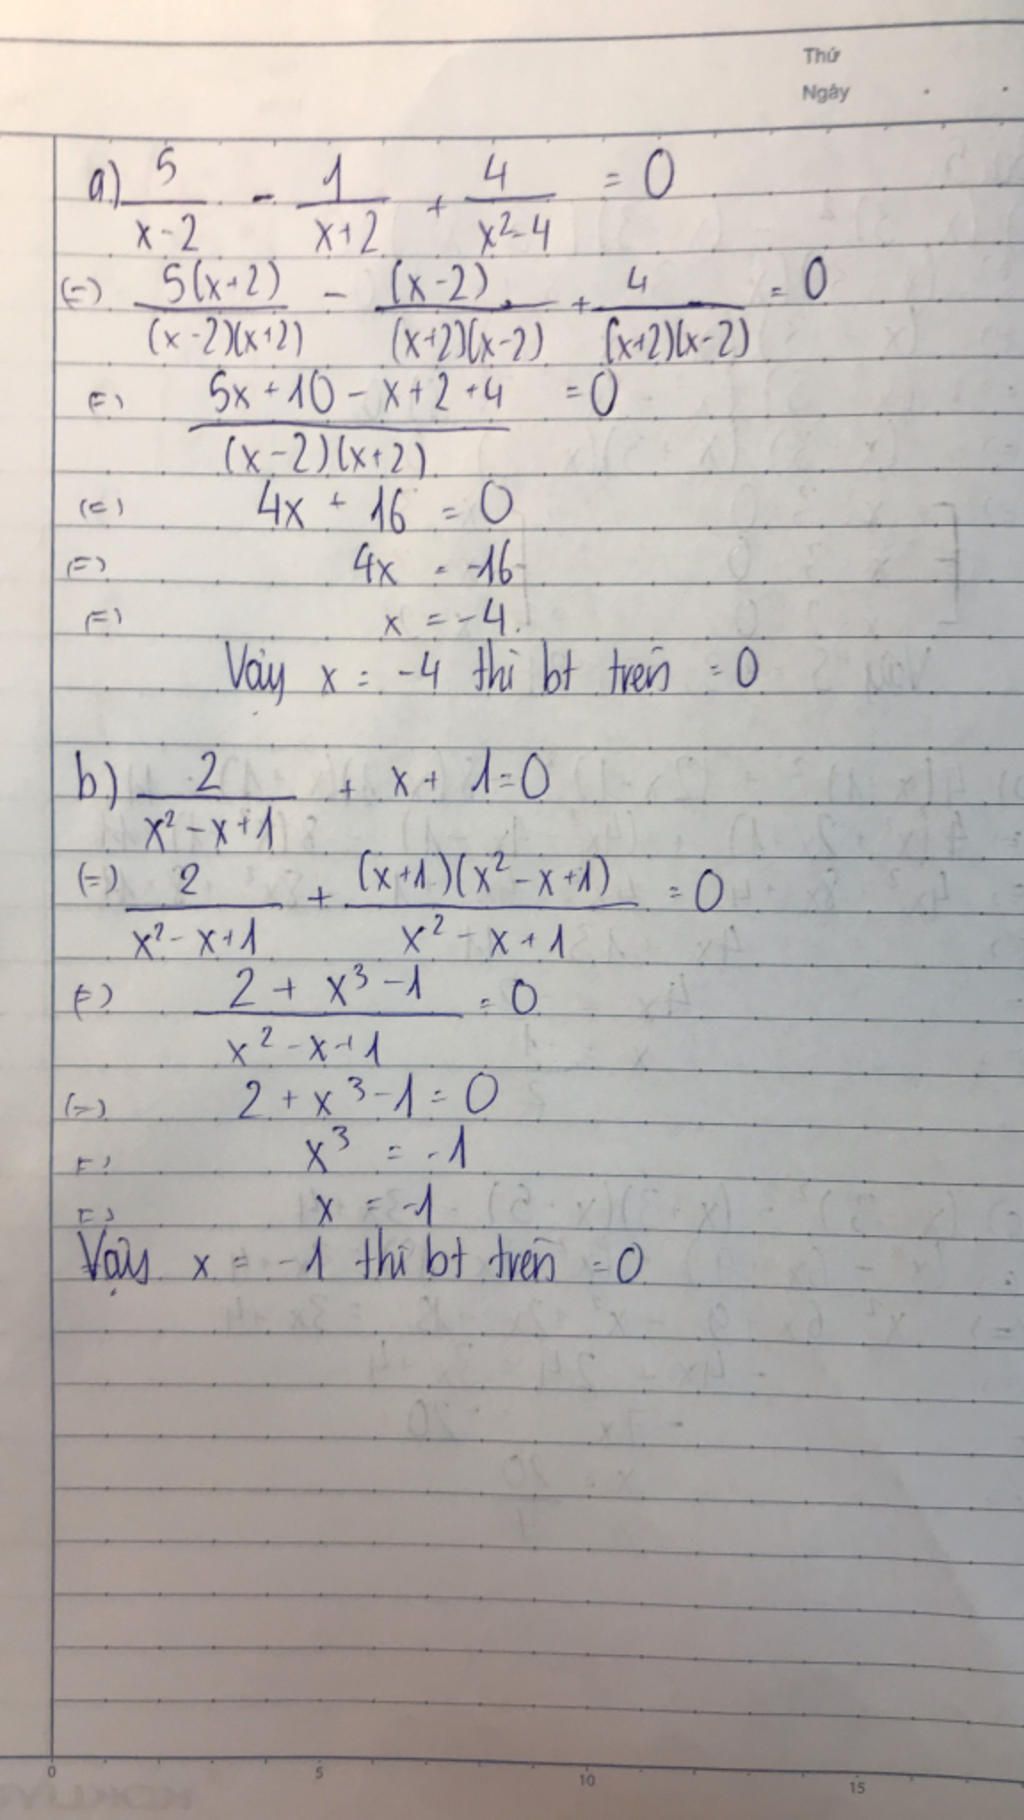 Thứ
Ngày
a) 5/(x-2) - 1/(x+2) + 4/(x²-4) = 0
(=) 5(x+2)/((x-2)(x+2)) - (x-2)/((x+2)(x-2)) + 4/((x+2)(x-2)) = 0
(=) (5x+10-x+2+4)/((x-2)(x+2)) = 0
(=) 4x + 16 = 0
(=) 4x = -16
(=) x = -4.
Vậy x = -4 thì bt trên = 0
b) 2/(x²-x+1) + x + 1 = 0
(=) 2/(x²-x+1) + (x+1)(x²-x+1)/(x²-x+1) = 0
(=) (2 + x³ - 1)/(x²-x+1) = 0
(=) 2 + x³ - 1 = 0
(=) x³ = -1
(=) x = -1
Vậy x = -1 thì bt trên = 0
0 5 10 15